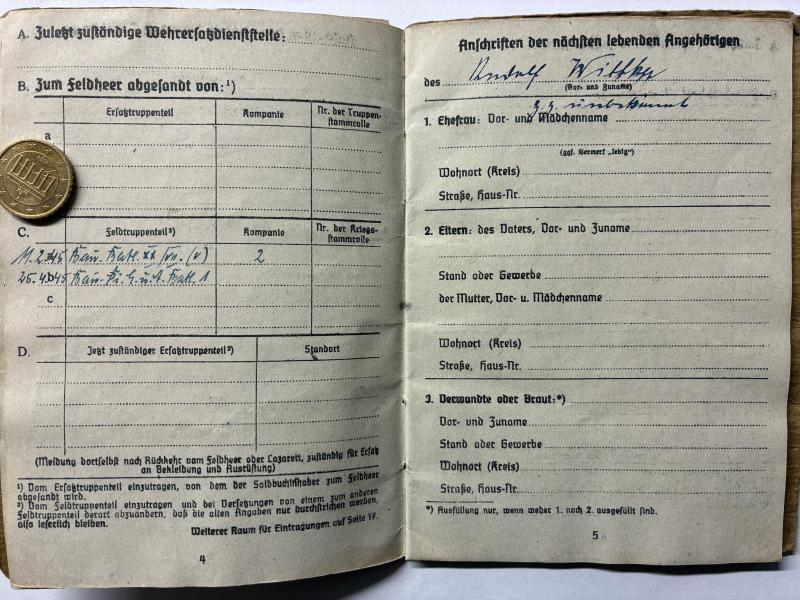 A. Zuletzt zuständige Wehrersatzdienststelle:
B. Zum Feldheer abgesandt von:¹)
Ersatztruppenteil
Kompanie
Nr. der Truppen-
stammrolle
a
C.
Feldtruppenteil²)
Kompanie
Nr. der Kriegs-
stammrolle
11.2.45 Batl. (v) 2
25.4.45 b Batl. 1
c
D.
Jetzt zuständiger Ersatztruppenteil²)
Standort
(Meldung dortselbst nach Rückkehr vom Feldheer oder Lazarett, zuständig für Ersatz
an Bekleidung und Ausrüstung)
¹) Vom Ersatztruppenteil einzutragen, von dem der Soldbuchinhaber zum Feldheer
abgesandt wird.
²) Vom Feldtruppenteil einzutragen und bei Versetzungen von einem zum anderen
Feldtruppenteil derart abzuändern, daß die alten Angaben nur durchstrichen werden,
also leserlich bleiben.
Weiterer Raum für Eintragungen auf Seite 17.
4
Anschriften der nächsten lebenden Angehörigen
des Rudolf
(Vor- und Zuname)
z. Z. unbekannt
1. Ehefrau: Vor- und Mädchenname
(ggf. Vermerk „ledig")
Wohnort (Kreis)
Straße, Haus-Nr.
2. Eltern: des Vaters, Vor- und Zuname
Stand oder Gewerbe
der Mutter, Vor- u. Mädchenname
Wohnort (Kreis)
Straße, Haus-Nr.
3. Verwandte oder Braut:*)
Vor- und Zuname
Stand oder Gewerbe
Wohnort (Kreis)
Straße, Haus-Nr.
*) Ausfüllung nur, wenn weder 1. noch 2. ausgefüllt sind.
5